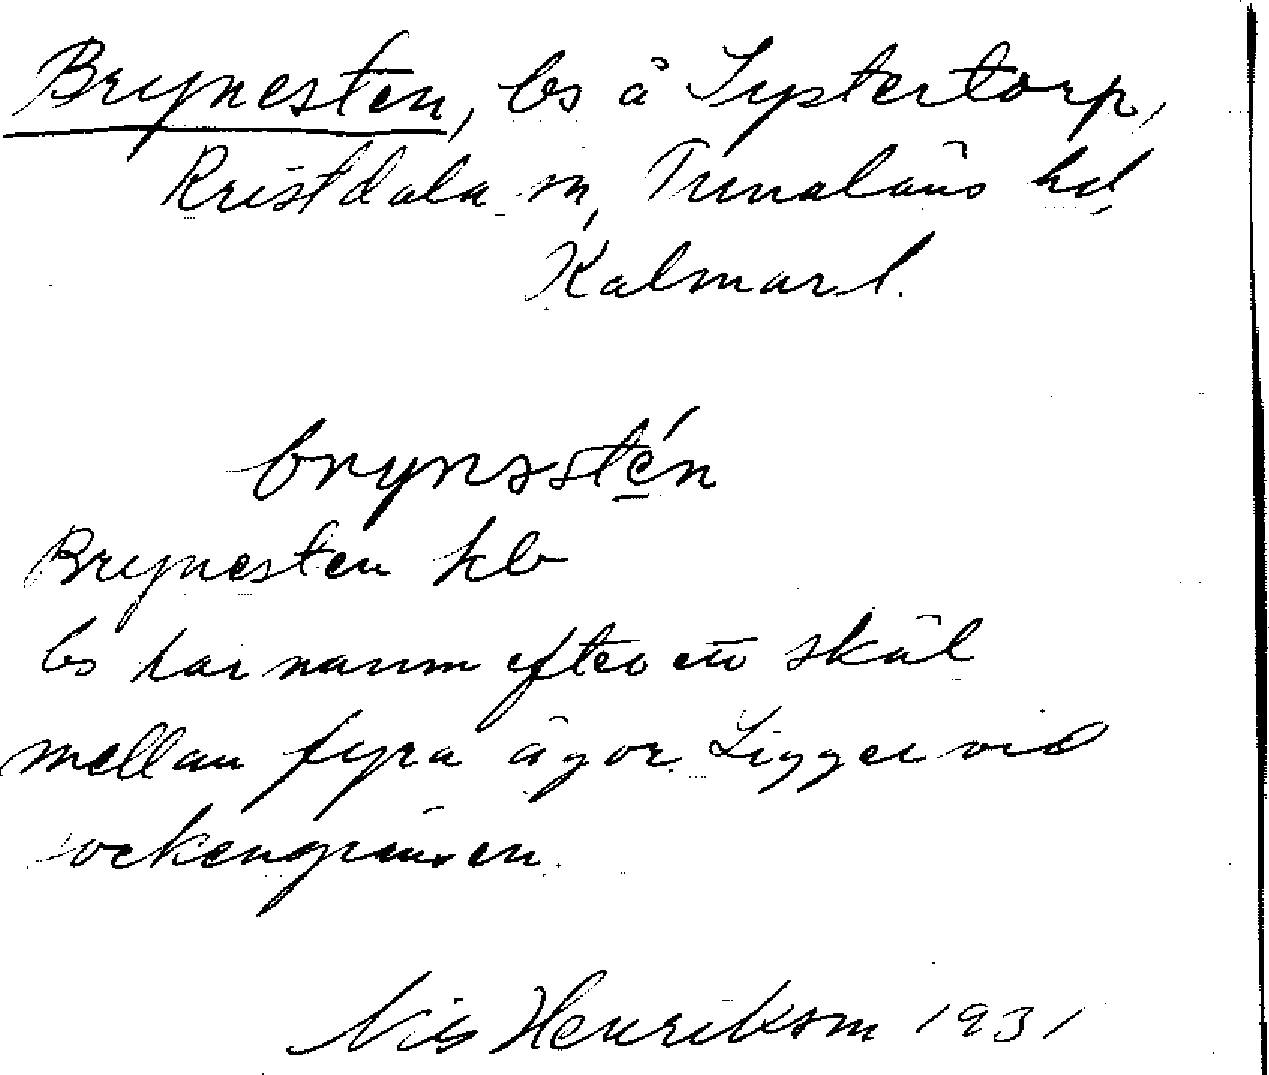 Brynesten, bs å Systertorp,
Kristdala sn, Tunaläns hd,
Kalmar l.
brynsstén
Brynesten kb
bs har namn efter ett skäl
mellan fyra ägor. Ligger vid
sockengränsen.
Nils Henrikson 1931